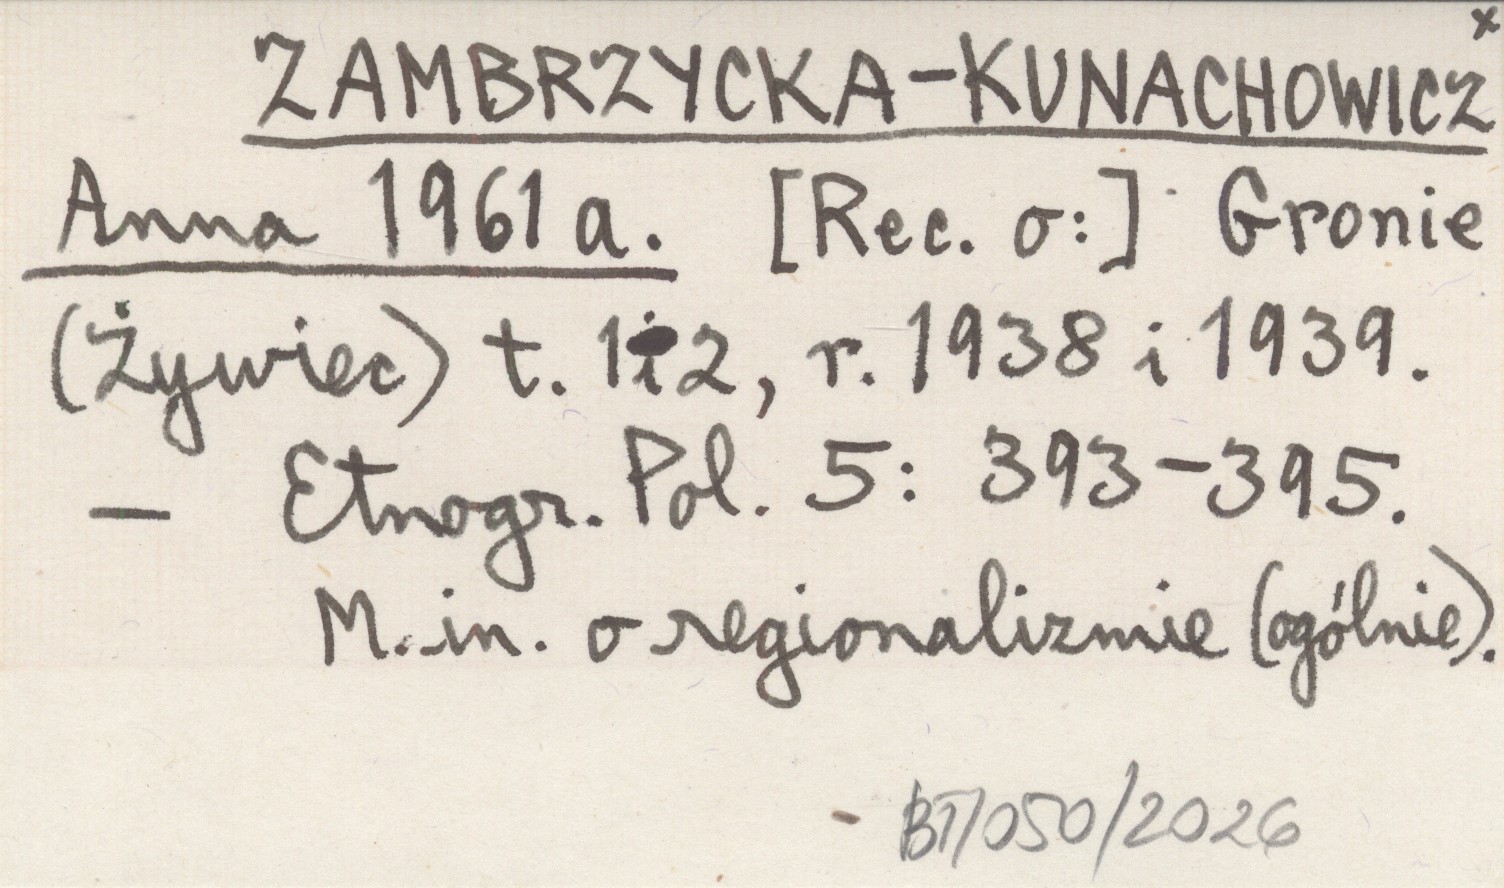 x
ZAMBRZYCKA-KUNACHOWICZ
Anna 1961 a. [Rec. o:] Gronie
(Żywiec) t. 1 i 2, r. 1938 i 1939.
— Etnogr. Pol. 5: 393-395.
M. in. o regionalizmie (ogólnie).
BT/050/2026